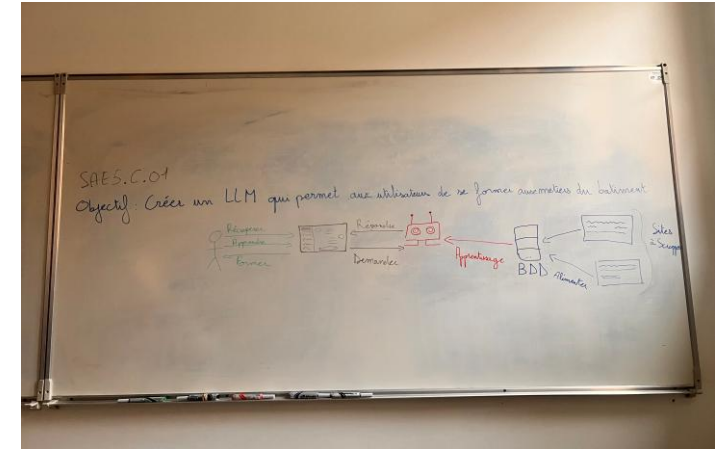 SAE5.C.01
Objectif : Créer un LLM qui permet aux utilisateurs de se former aux métiers du batiment
Récupérer
Apprendre
Former
Répondre
Demander
Apprentissage
BDD
Alimenter
Sites
à Scrapper